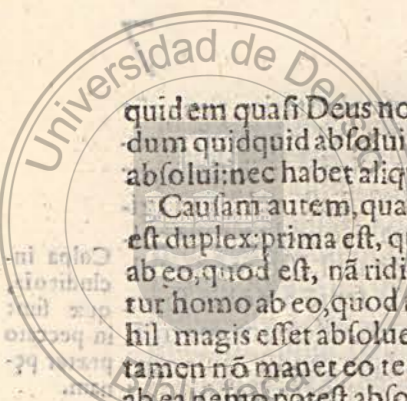 Universidad de De
quidem quasi Deus no
dum quidquid absolui
absolui: nec habet aliq
Causam autem, qua
est duplex: prima est, q
ab eo, quod est, nã ridi
tur homo ab eo, quod
hil magis esset absolue
tamen nõ manet eo te
ab ea nemo potest abso
Biblioteca